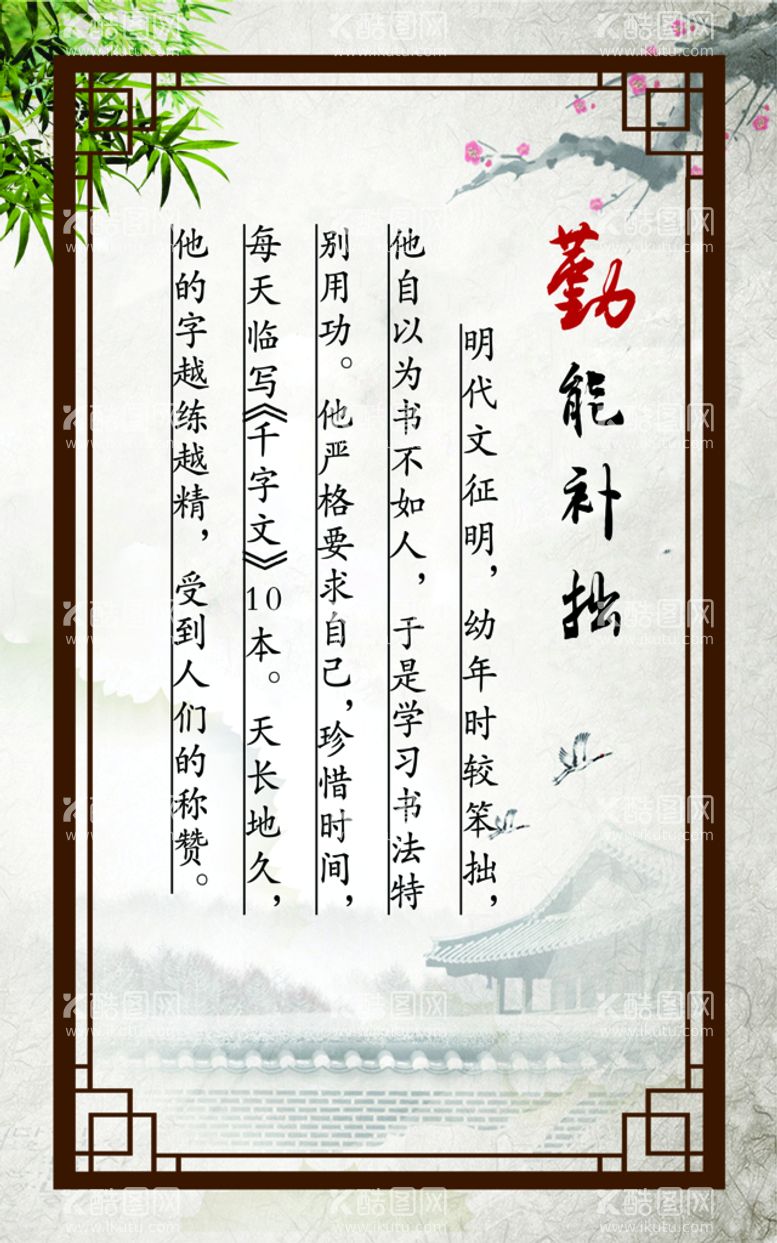 勤能补拙
明代文征明，幼年时较笨拙，
他自以为书不如人，于是学习书法特
别用功。他严格要求自己，珍惜时间，
每天临写《千字文》10本。天长地久，
他的字越练越精，受到人们的称赞。
酷图网
www.ikutu.com